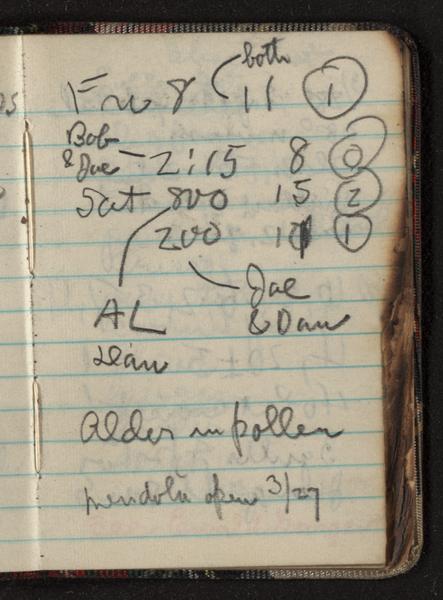 both
Fri 8 11 1
Bob
& Joe 2:15 8 0
Sat 800 15 2
200 1
Joe
& Dan
AL
Alder in pollen
open 3/27